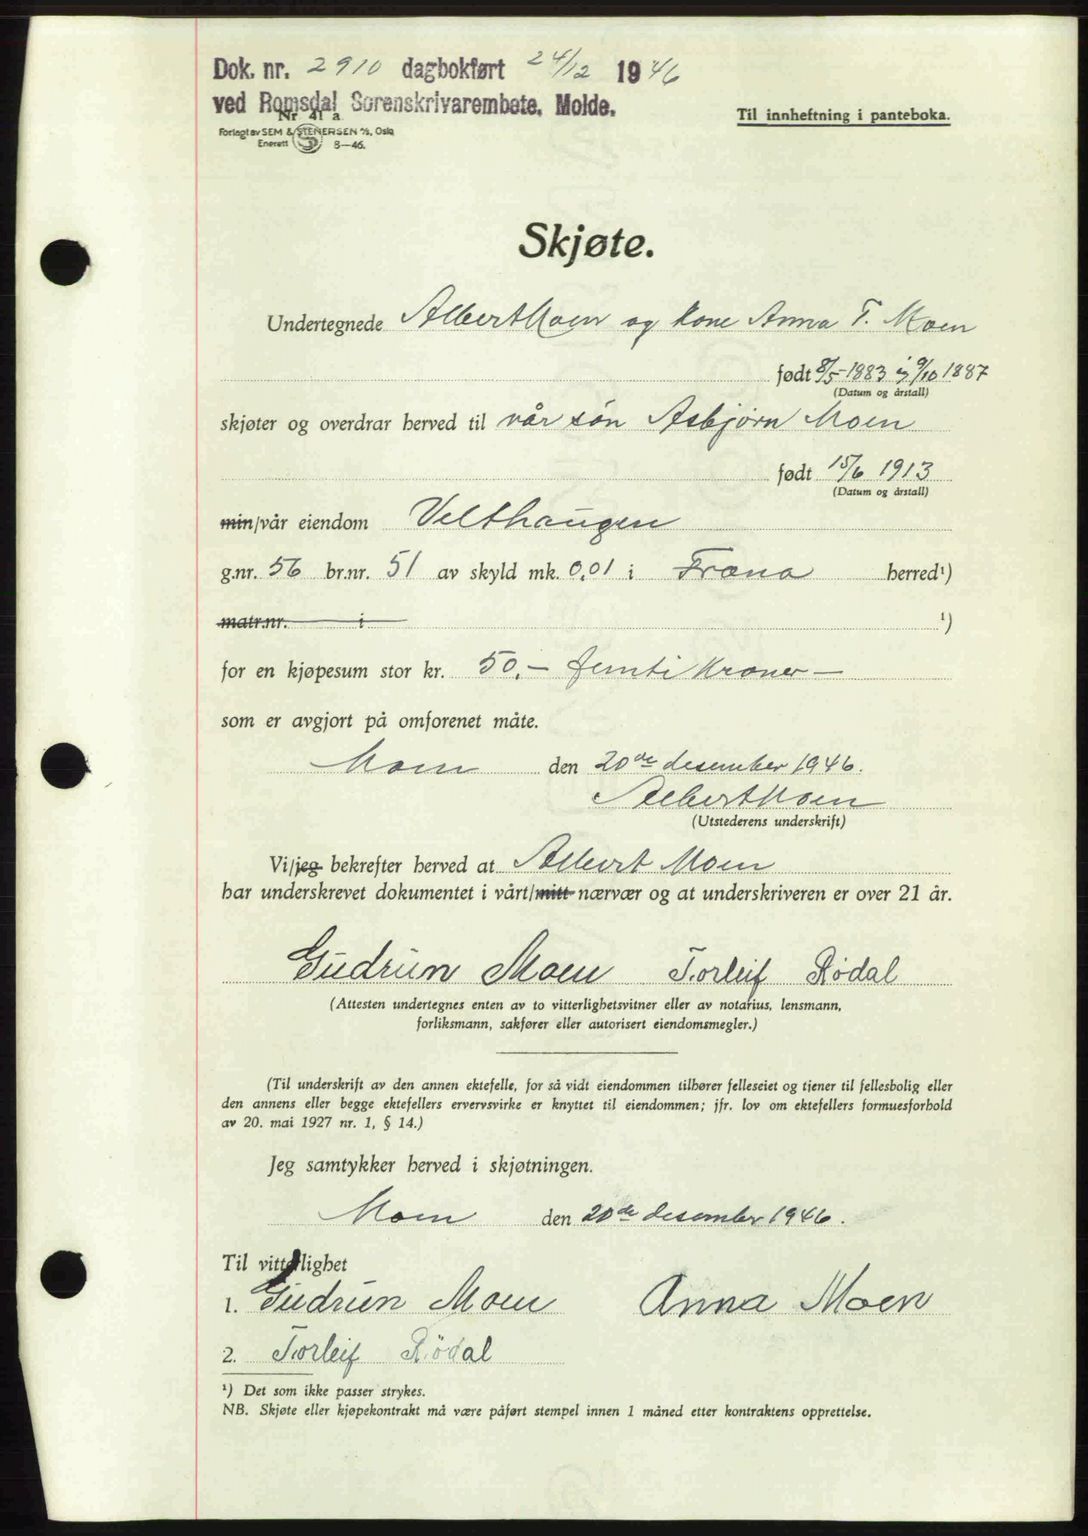 Dok. nr. 2910 dagbokført 24/12 1946
ved Romsdal Sorenskrivarembete, Molde.
Nr 41 a
Til innheftning i panteboka.
Forlagt av SEM & STENERSEN A/S, Oslo
Enerett 8-46.
Skjøte.
Undertegnede Albert Moen og kone Anna T. Moen
født 8/5-1883 9/10 1887
(Datum og årstall)
skjøter og overdrar herved til vår søn Asbjørn Moen
født 15/6 1913
(Datum og årstall)
min/vår eiendom Velthaugen
g.nr. 56 br.nr. 51 av skyld mk. 0,01 i Fræna herred¹)
matr.nr. i ¹)
for en kjøpesum stor kr. 50,- femti kroner -
som er avgjort på omforenet måte.
Moen den 20de desember 1946.
Albert Moen
(Utstederens underskrift)
Vi/jeg bekrefter herved at Albert Moen
har underskrevet dokumentet i vårt/mitt nærvær og at underskriveren er over 21 år.
Gudrun Moen Torleif Rødal
(Attesten undertegnes enten av to vitterlighetsvitner eller av notarius, lensmann,
forliksmann, sakfører eller autorisert eiendomsmegler.)
(Til underskrift av den annen ektefelle, for så vidt eiendommen tilhører felleseiet og tjener til fellesbolig eller
den annens eller begge ektefellers ervervsvirke er knyttet til eiendommen; jfr. lov om ektefellers formuesforhold
av 20. mai 1927 nr. 1, § 14.)
Jeg samtykker herved i skjøtningen.
Moen den 20de desember 1946.
Til vitterlighet
1. Gudrun Moen Anna Moen
2. Torleif Rødal
¹) Det som ikke passer strykes.
NB. Skjøte eller kjøpekontrakt må være påført stempel innen 1 måned etter kontraktens opprettelse.